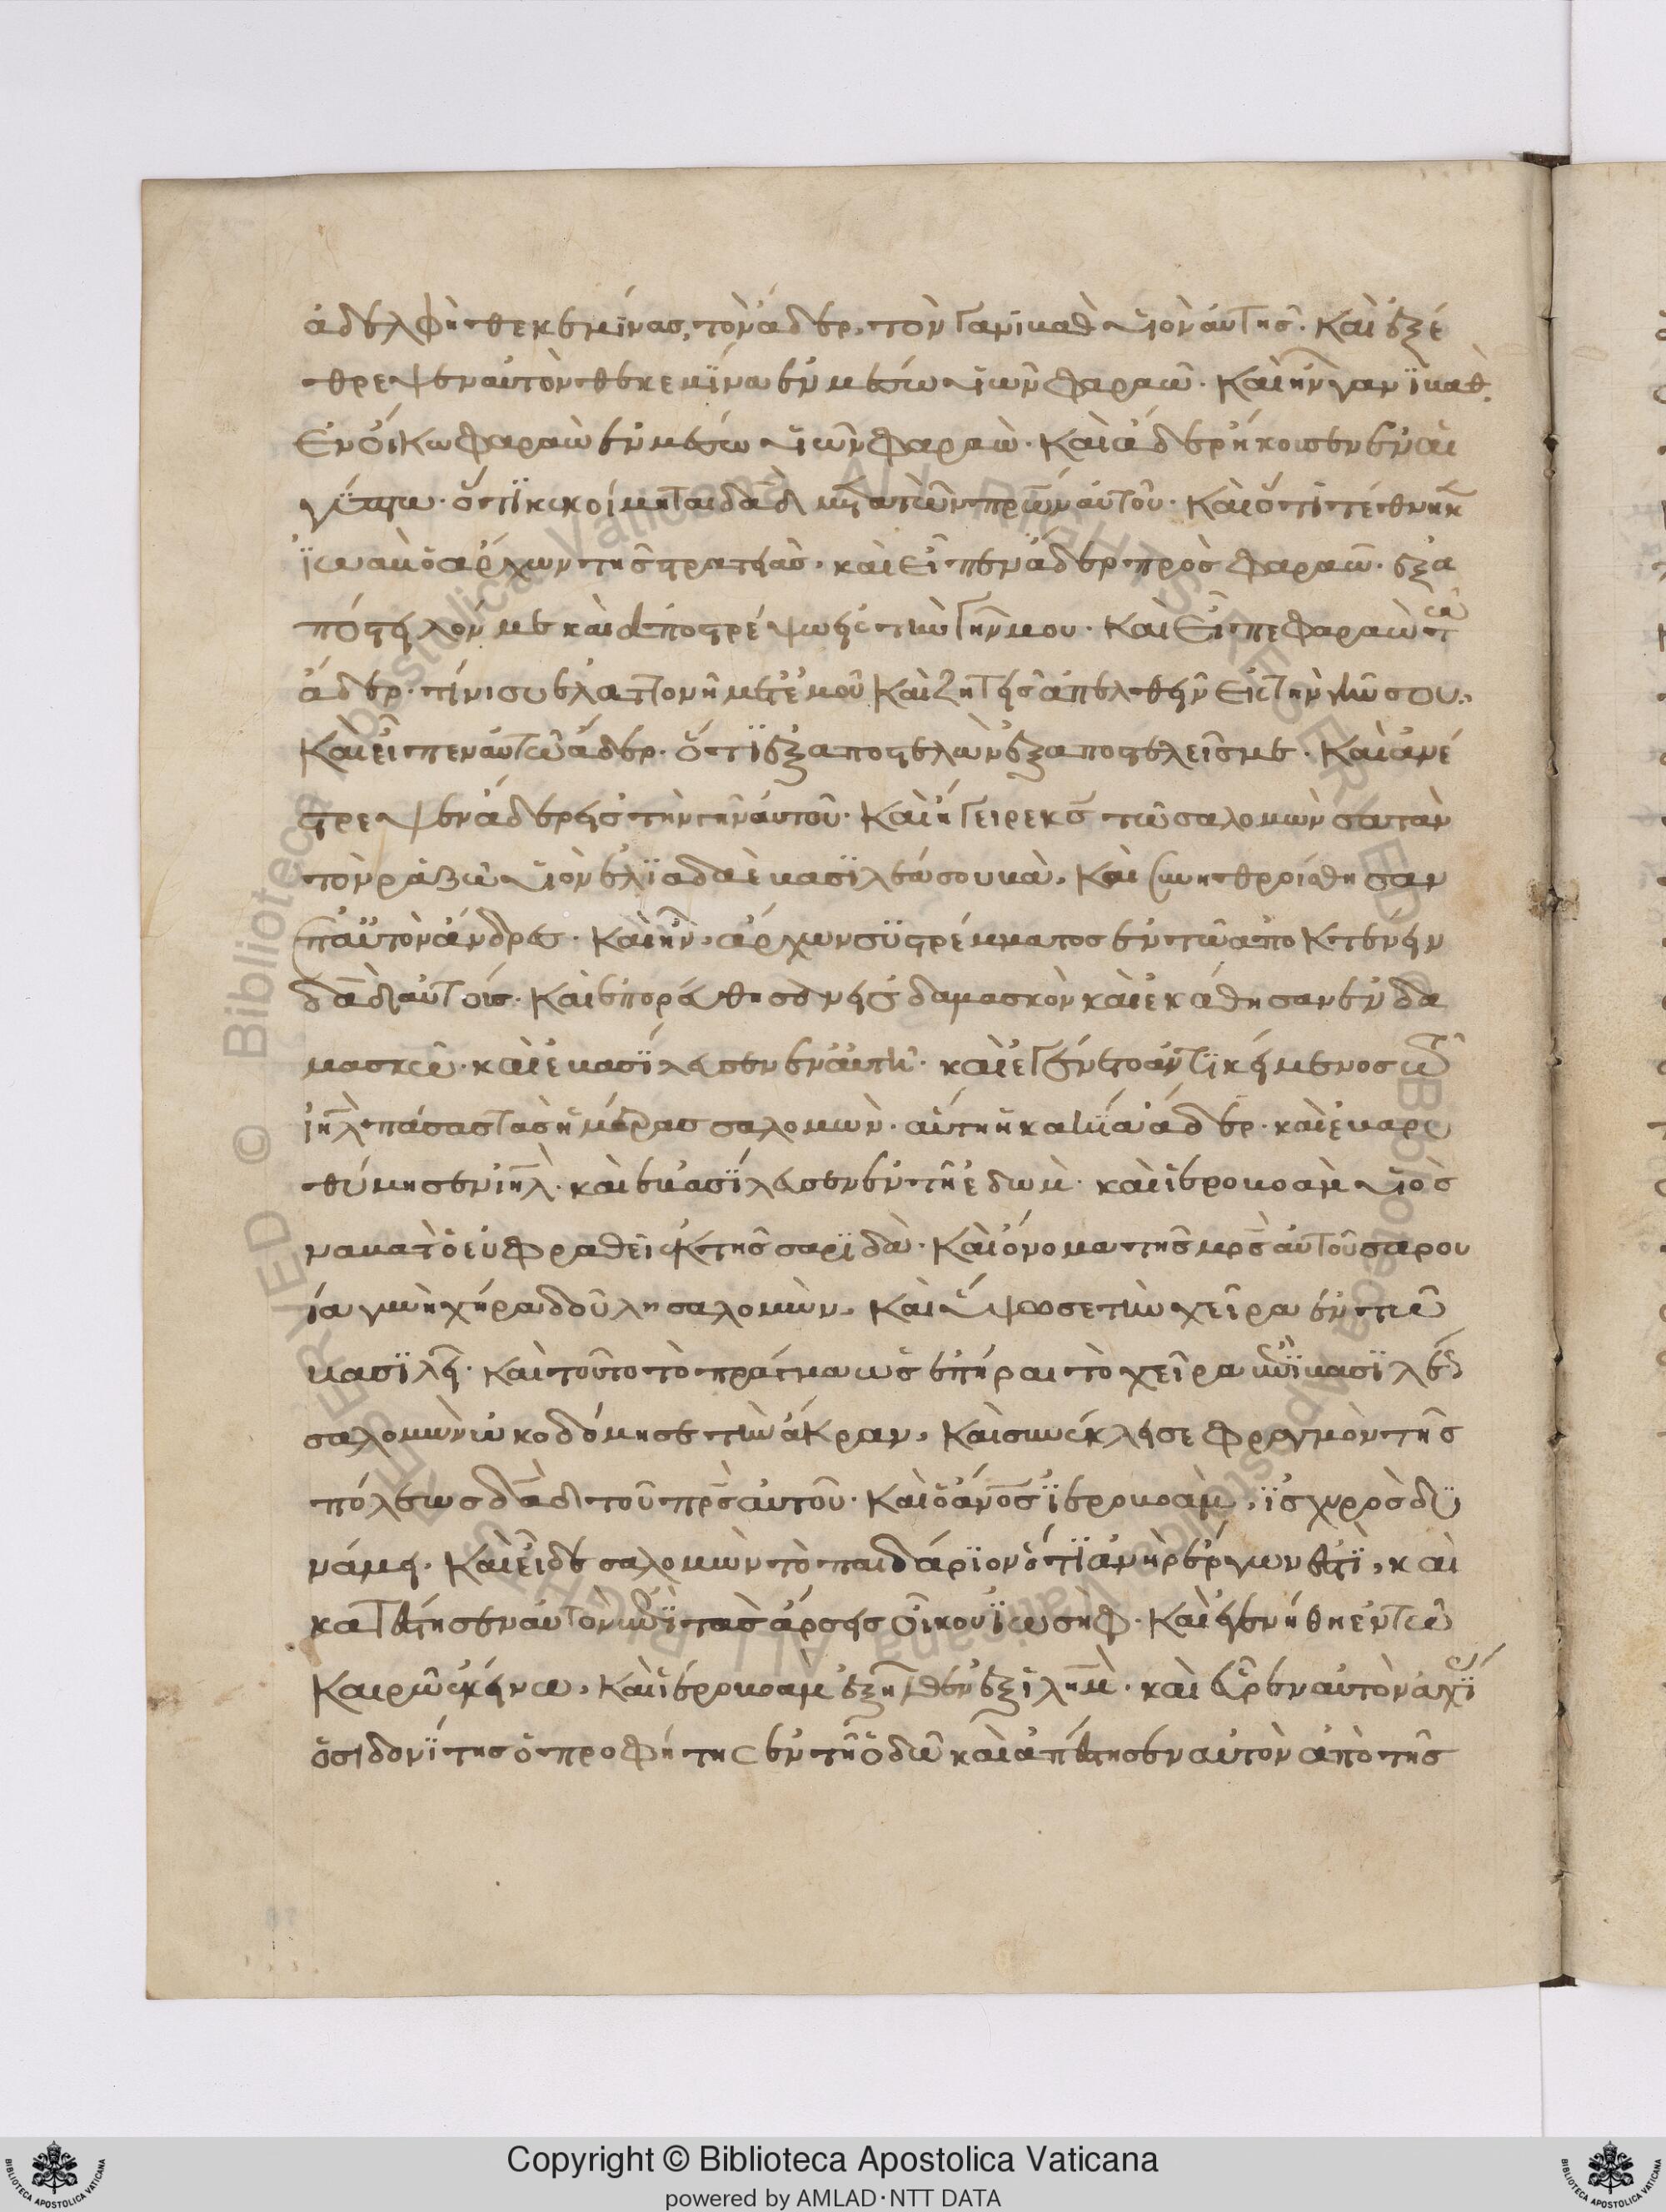 ἀδελφὴ θεκεμίνας, τὸν ἄδερ, τὸν γανίβαθ υἱὸν αὐτῆς· Καὶ ἐξέ
θρεψεν αὐτὸν θεκεμίνα ἐν μέσω υἱῶν φαραώ· Καὶ ἦν γανίβαθ
Ἐν οἴκω φαραὼ ἐν μέσω υἱῶν φαραὼ· Καὶ ἄδερ ἤκουσεν ἐν αἰ
γύπτω· ὅτι κεκοίμηται δαδ μετὰ τῶν πρων αὐτοῦ· Καὶ ὅτι τέθνηκεν
ϊωαβ ὁ ἄρχων τῆς στρατειᾶς· καὶ εἶπεν ἄδερ πρὸς φαραώ· ἐξα
πόστειλόν με καὶ ἀποστρέψω εἰς τὴν γῆν μου· Καὶ εἶπε φαραὼ τῶ
ἄδερ· τίνι σὺ ἐλαττονῆ μετ ἐμοῦ Καὶ ζητεῖς ἀπελθεῖν εἰς τὴν γῆν σου·
Καὶ εἶπεν αὐτῶ ἄδερ· ὅτι ἐξαποστελῶν ἐξαποστελεῖς με· Καὶ ἀνέ
στρεψεν ἄδερ εἰς τὴν γῆν αὐτοῦ· Καὶ ἤγειρε κς τῶ σαλομὼν σατὰν
τὸν ῥαζὼν υἱὸν ἐλιαδαὲ βασιλέα σουβὰ, Καὶ συνηθροίσθησαν
ἐπ αὐτὸν ἄνδρες· Καὶ ἦν, ἄρχων συστρέμματος ἐν τῶ ἀποκτένειν
δαδ αὐτοῖς· Καὶ ἐπορεύθησαν εἰς δαμασκὸν καὶ ἐκάθησαν ἐν δα
μασκῶ· καὶ ἐβασίλευσεν ἐν αὐτῆ· καὶ ἐγένετο ἀντικείμενος τῶ
ἰηλ πάσας τὰς ἡμέρας σαλομὼν· αὕτη ἡ κακία ἄδερ· καὶ ἐβαρυ
θύμησεν ἰηλ· καὶ ἐβασίλευσεν ἐν τῆ ἐδωμ· καὶ ἱεροβοὰμ υἱὸς
ναβατ ὁ εὐφραθεὶ ἐκ τῆς σαριδὰ· Καὶ ὄνομα τῆς μρς αὐτοῦ σαρου
ία γυνὴ χήρα δούλη σαλομὼν, Καὶ ὕψωσε τὴν χεῖρα ἐν τῶ
βασιλεῖ· Καὶ τοῦτο τὸ πρᾶγμα ὡς ἐπήραι το χεῖρα ἐπὶ βασιλέα
σαλομὼν ὠκοδόμησε τὴν ἄκραν, Καὶ συνέκλεισε φραγμὸν τῆς
πόλεως δαδ τοῦ πρς αὐτοῦ· Καὶ ὁ ἀνος ἱεροβοὰμ, ἰσχυρὸς δυ
νάμει· Καὶ εἶδε σαλομὼν τὸ παιδάριον ὅτι ἀνὴρ ἔργων ἐστὶ, καὶ
κατέστησεν αὐτὸν ἐπὶ τὰς ἄρσεις οἴκου ἰωσήφ· Καὶ ἐγενήθη ἐν τῶ
Καιρῶ ἐκείνω, Καὶ ἱεροβοὰμ ἐξῆλθεν ἐξ ἰλημ· καὶ εὗρεν αὐτὸν ἀχϊά
ὁ σιδονίτης ὁ προφήτης ἐν τῆ ὁδῶ καὶ ἀπέστησεν αὐτὸν ἀπὸ τῆς
Copyright © Biblioteca Apostolica Vaticana
powered by AMLAD·NTT DATA